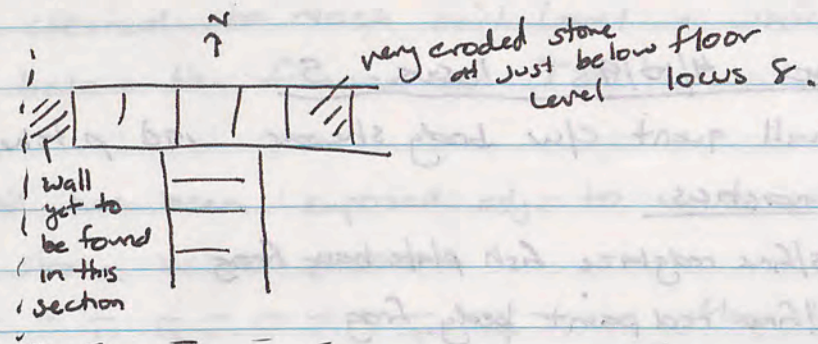 N
very eroded stone
at just below floor
level locus 8.
wall
yet to
be found
in this
section